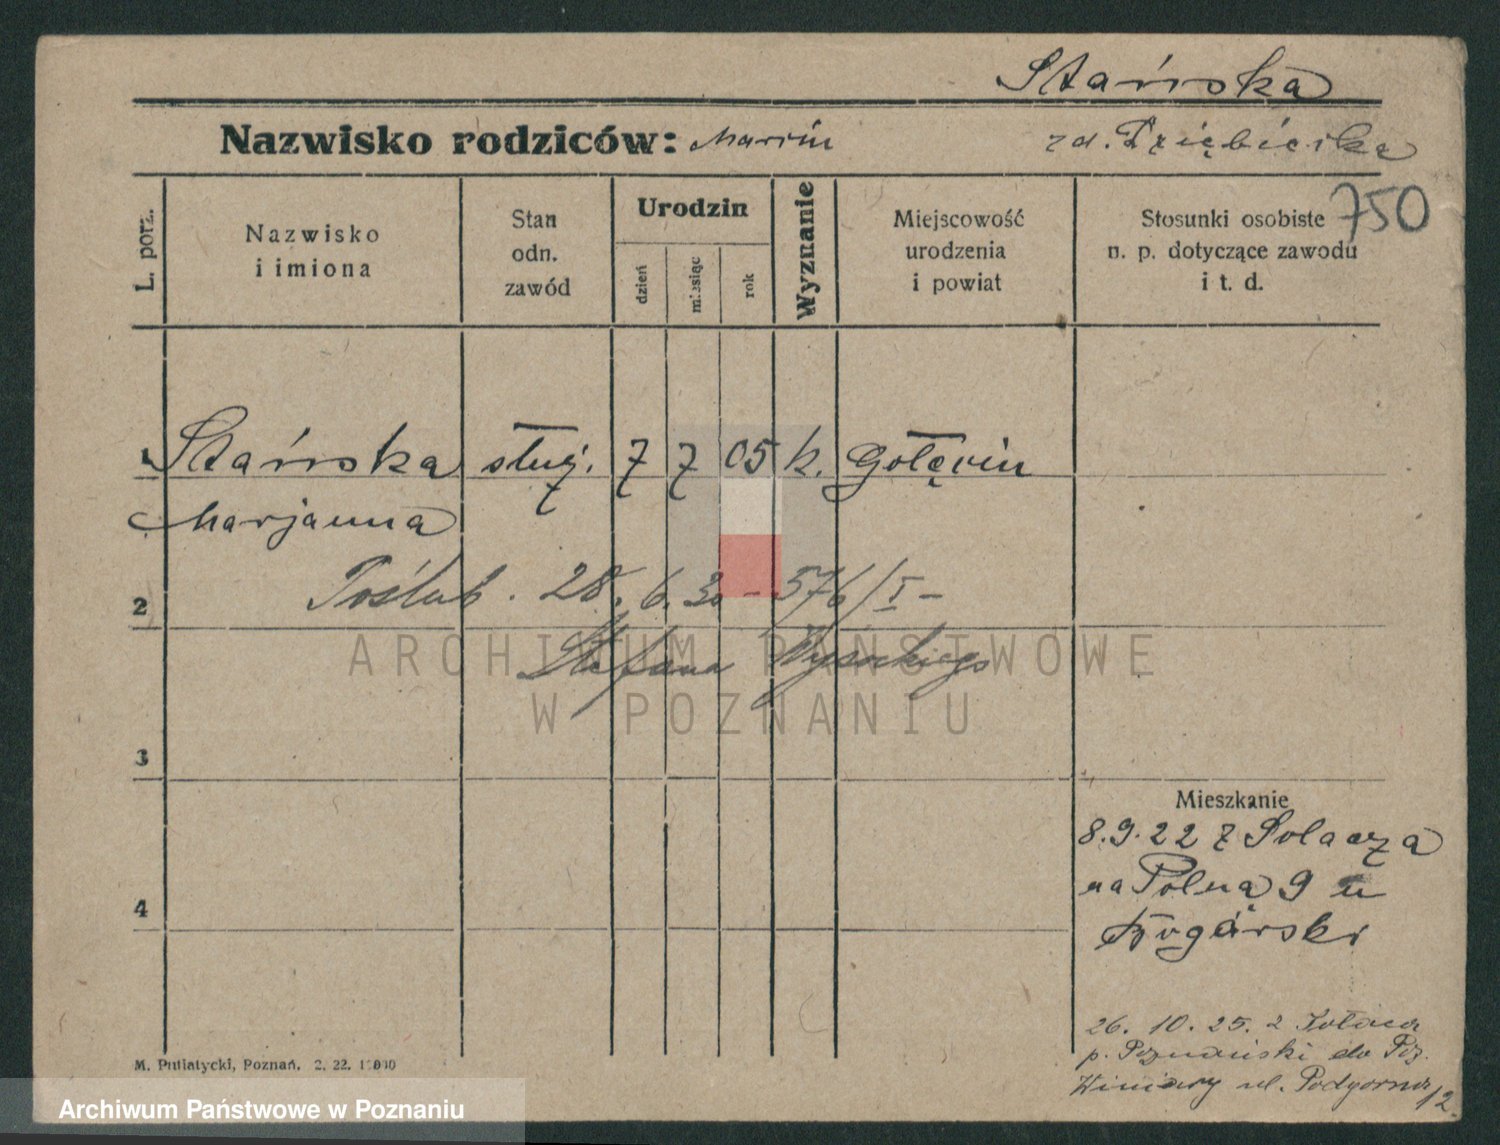 Stańska
Nazwisko rodziców: Marcin zd.
750
L. porz.
Nazwisko
i imiona
Stan
odn.
zawód
Urodzin
dzień
miesiąc
rok
Wyznanie
Miejscowość
urodzenia
i powiat
Stosunki osobiste
n. p. dotyczące zawodu
i t. d.
1 Stańska służ. 7 7 05 k. Golęcin
Marjanna
2 Poślub. 28. 6. 30 - 576/I -
Stefana Wysockiego
ARCHIWUM PAŃSTWOWE
W POZNANIU
3
4
Mieszkanie
8.9.22 z Sołacza
na Polną 9 u
26. 10. 25. z
p. Poznański do Poz.
Winiary ul. Podgorna 12.
M. Putiatycki, Poznań. 2. 22.
Archiwum Państwowe w Poznaniu